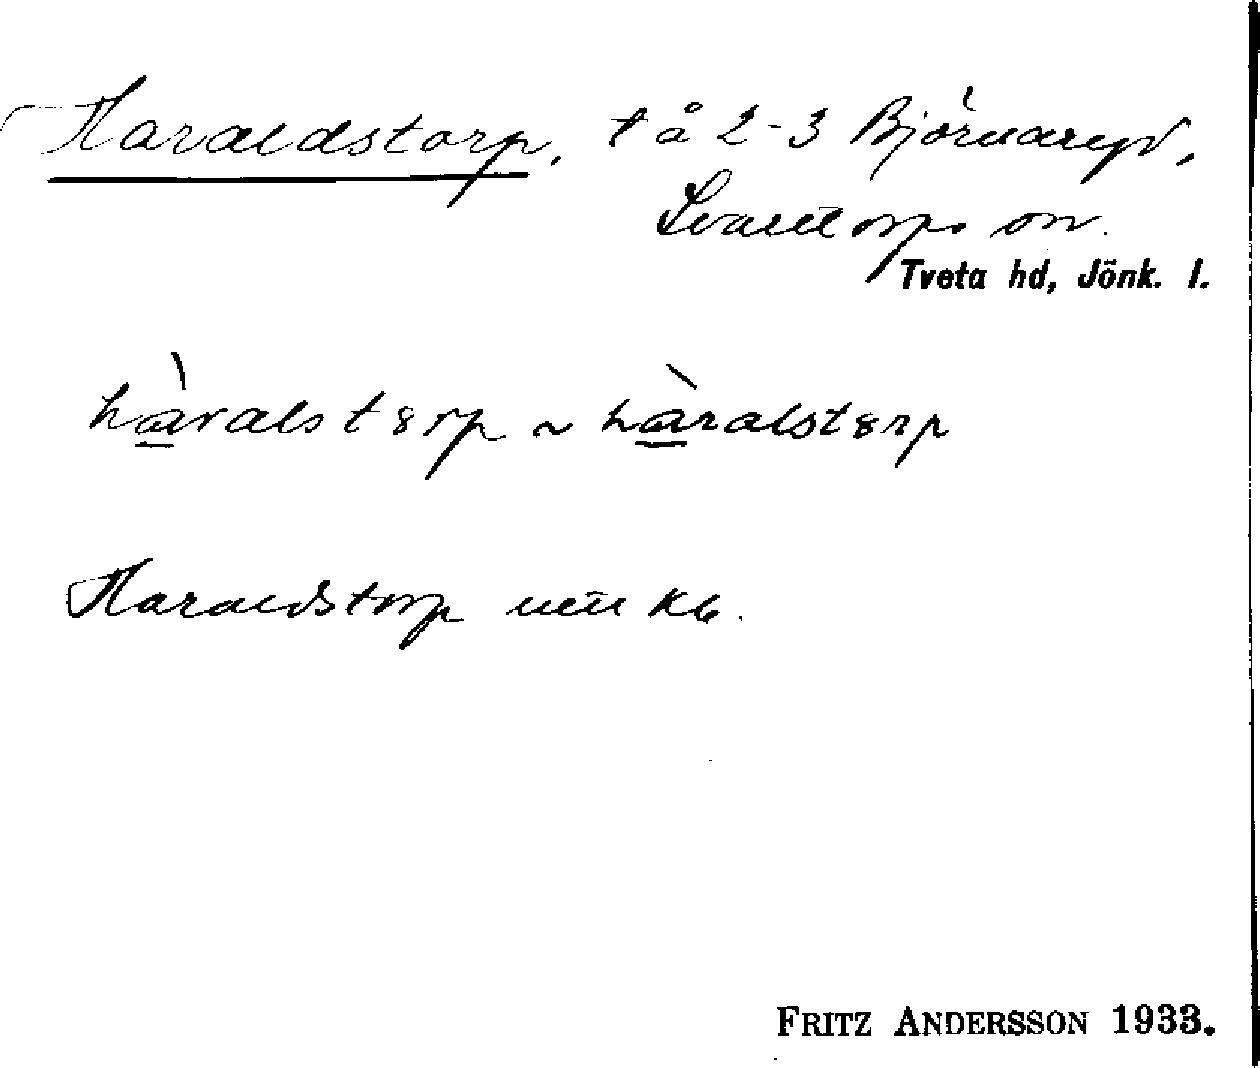 Haraldstorp, t å 2-3 Björnaryd,
Svarttorps sn.
Tveta hd, Jönk. l.
hàralstɞrp ~ hàralstɞrp
Haraldstorp 1880 kb.
FRITZ ANDERSSON 1933.